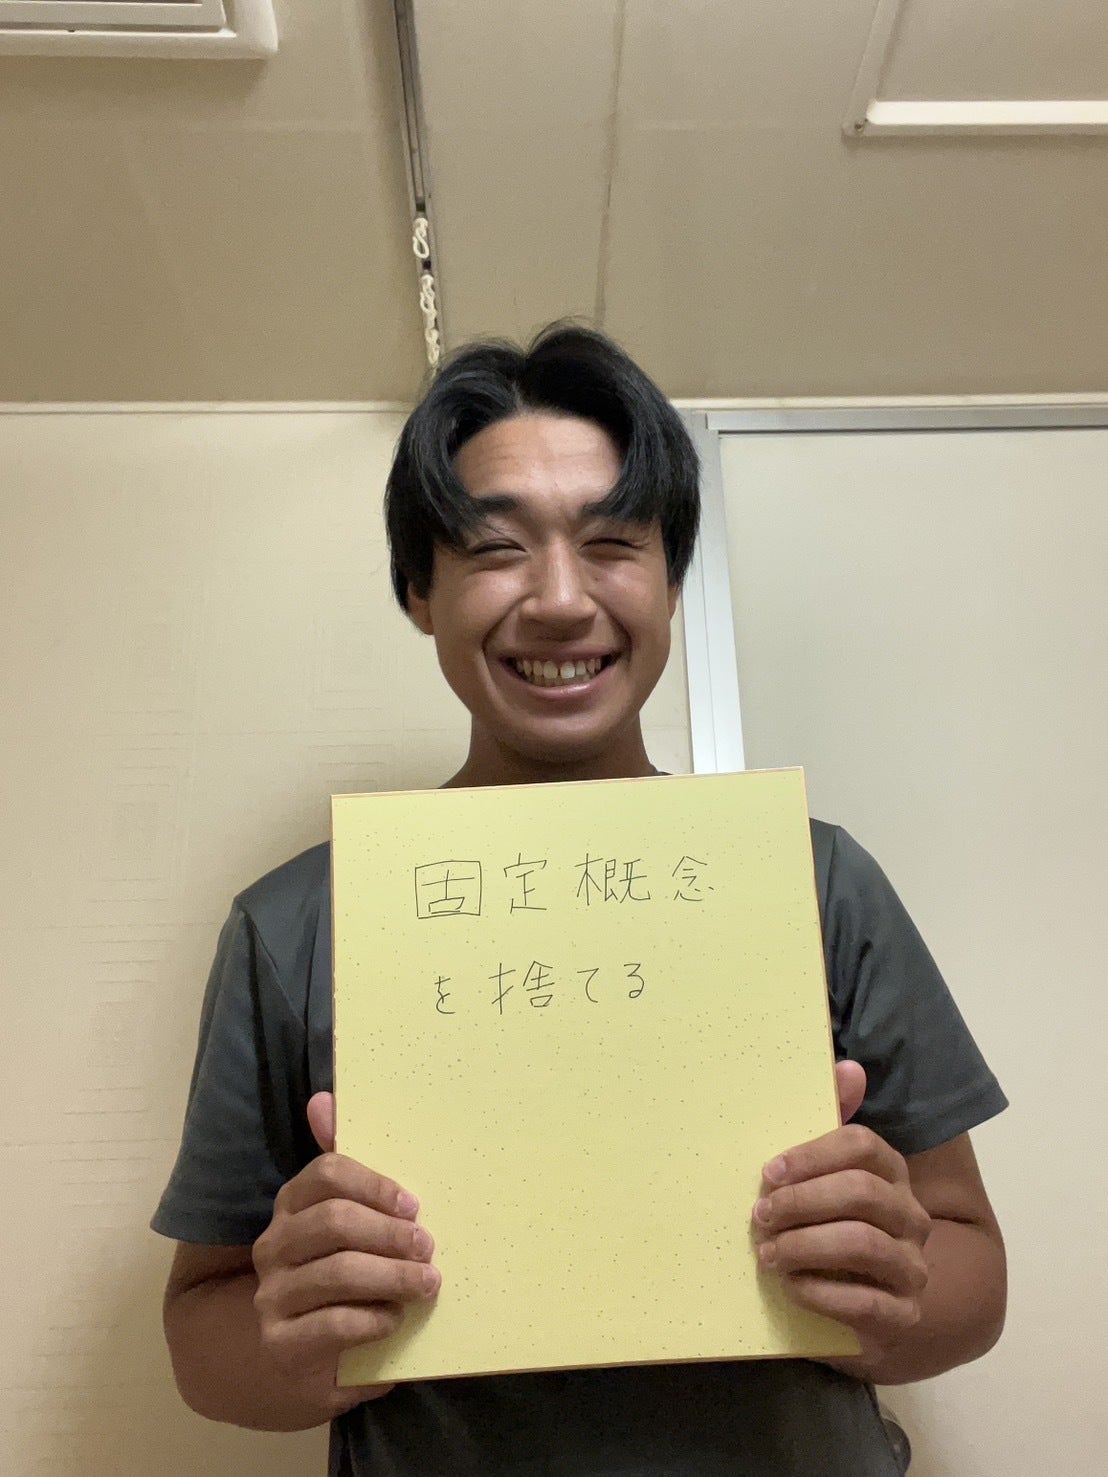 固定概念
を捨てる